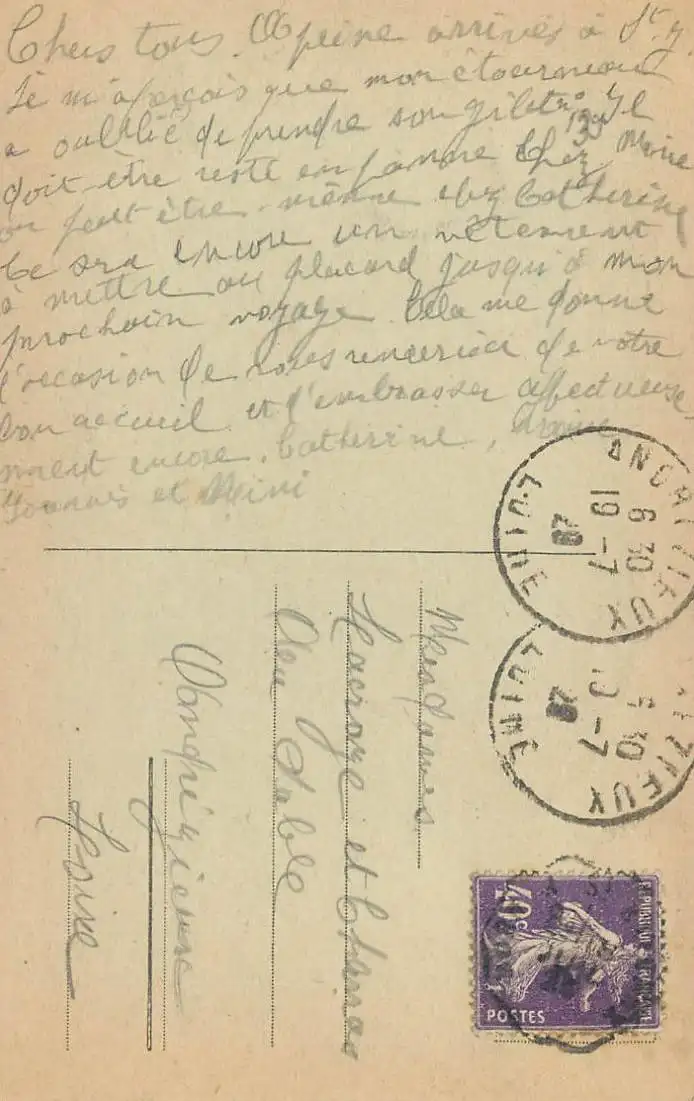 Chers tous. A peine arrivés à St
Je m'aperçois que mon étourneau
a oublié de prendre son gilet n° 1
133 Il
doit être resté en panne chez Mimi
ou peut être même chez Catherine
Ce sera encore un vêtement
à mettre au placard jusqu'à mon
prochain voyage. Cela me donne
l'occasion de vous remercier de votre
bon accueil et d'embrasser affectueuse-
ment encore. Catherine,
et Mimi
ANDRÉZIEUX
6 30
19 - 7
37
LOIRE
6 30
19 - 7
37
LOIRE
Mesdames
Lacroze et
Au Sable
Andrézieux
Loire
REPUBLIQUE FRANCAISE
40c
POSTES